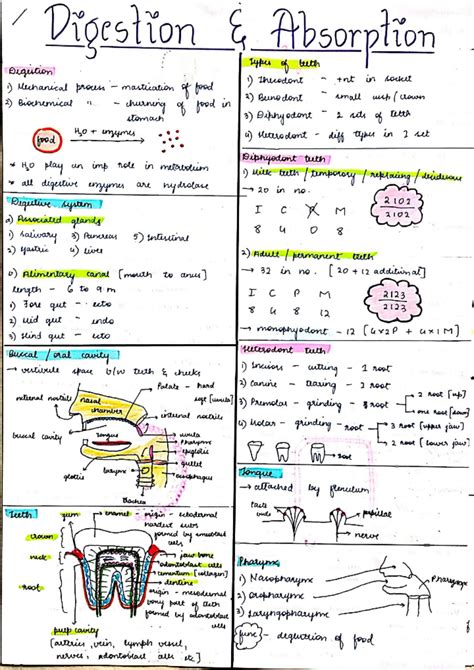 Digestion & Absorption
Digestion
1) Mechanical process - mastication of food
2) Biochemical " - churning of food in
stomach
food
H2O + enzymes
* H2O play an imp role in metabolism
* all digestive enzymes are hydrolase
Digestive system
a) Associated glands
1) Salivary 3) Pancreas 5) Intestinal
2) Gastric 4) liver
b) Alimentary canal [mouth to anus]
length - 6 to 9 m
1) Fore gut - ecto
2) Mid gut - endo
3) Hind gut - ecto
Buccal / oral cavity
→ vestibule space b/w teeth & cheeks
Palate - hard
soft [uvula]
external nostrils
nasal
chamber
internal nostrils
buccal cavity
tongue
uvula
pharynx
epiglottis
gullet
oesophagus
glottis
larynx
trachea
Teeth
gum
enamel
origin - ectodermal
hardest subs
formed by ameloblast
cells
crown
neck
root
jaw bone
odontoblast cells
cementum [collagen]
dentine
origin - mesodermal
bony part of teeth
formed by odontoblast
cells
pulp cavity
[artery, vein, lymph vessel,
nerves, odontoblast cells etc]
Types of teeth
1) Thecodont - +nt in socket
2) Bunodont - small cusp/crown
3) Diphyodont - 2 sets of teeth
4) Heterodont - diff types in 1 set
Diphyodont teeth
1) Milk teeth / temporary / replacing / deciduous
→ 20 in no.
I C P M
8 4 0 8
2102
2102
2) Adult / permanent teeth
→ 32 in no. [20 + 12 additional]
I C P M
8 4 8 12
2123
2123
→ monophyodont - 12 [4x2P + 4x1M]
Heterodont teeth
1) Incisors - cutting - 1 root
2) Canine - tearing - 1 root
3) Premolar - grinding - root
2 root [up]
one root [low]
4) Molar - grinding
3 root [upper jaw]
2 root [lower jaw]
root
Tongue
→ attached by frenulum
taste
buds
papillae
nerve
Pharynx
1) Nasopharynx
2) oropharynx
3) Laryngopharynx
Pharynx
func - deglutition of food